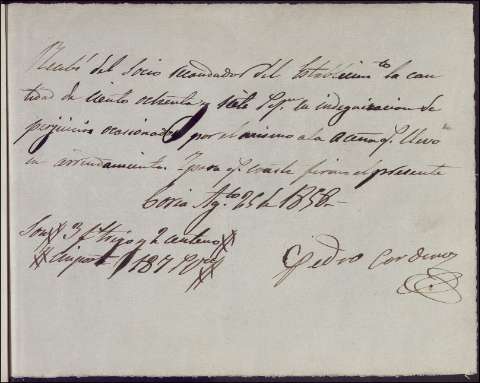 Recibí del Socio Mandadero del Establecimto la can
tidad de ciento ochenta y siete rs en indegnizacion de
perjuicios ocasionados por el mismo a la aceña q. llevo
en arrendamiento. Y para q. conste firmo el presente
Coria Agto 25 de 1858
Son 3 f trigo y 2 centeno
importe 187
Pedro Cordero